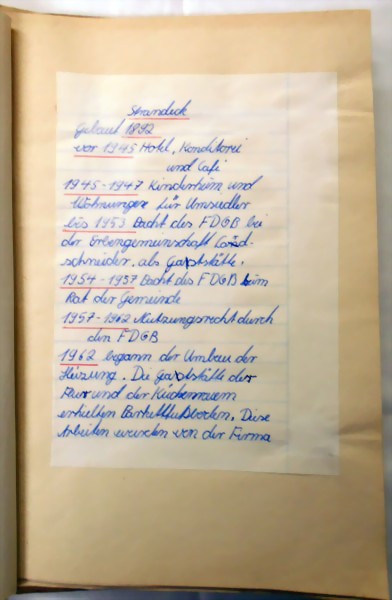 Strandeck
Gebaut 1892
vor 1945 Hotel, Konditorei
und Café
1945-1947 Kinderheim und
Wohnungen für Umsiedler
bis 1953 Pacht des FDGB bei
der Erbengemeinschaft
schneider, als Gaststätte.
1954-1957 Pacht des FDGB beim
Rat der Gemeinde
1957-1962 Nutzungsrecht durch
den FDGB
1962 begann der Umbau der
Heizung. Die Gaststätte der
Flur und der Küchenraum
erhielten Parkettfußboden. Diese
Arbeiten wurden von der Firma